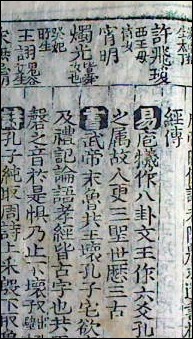 許飛瓊
西王母
宵明
燭光
王詡
經傳
易庖犧作八卦文王作六爻孔
之属故人更三聖世歷三古
書武帝末魯共王壞孔子宅欲
及禮記論語孝經皆古字也共王
磬之音於是惧乃止不壞
詩孔子純取周詩上采殷下取魯